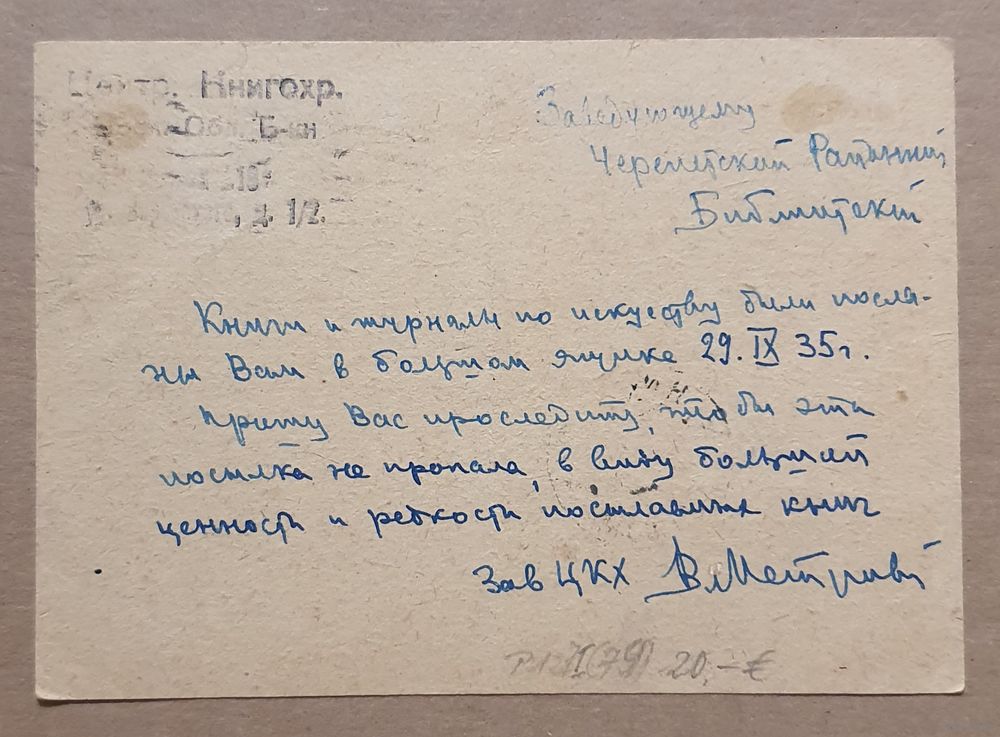 Центр. Книгохр.
Обл. Б-ки
д. 1/2.
Заведующему
Черепетской Районной
Библиотекой
Книги и журналы по искуству были посла-
ны Вам в большом ящике 29. IX 35 г.
Прошу Вас проследить, что бы эта
посылка не пропала, в виду большой
ценности и редкости посылаемых книг
Зав ЦКХ
20,– €